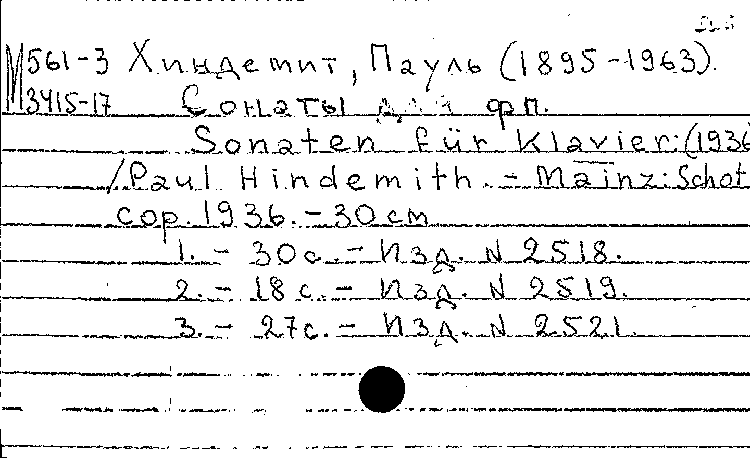 М561-3 Хиндемит, Пауль (1895-1963).
М3415-17 Сонаты для фп.
Sonaten für Klavier:(1936
/Paul Hindemith.-Mainz:Schot
cop.1936.-30cm
1.- 30с.- Изд. N 2518.
2.- 18с.- Изд. N 2519.
3.- 27с.- Изд. N 2521.